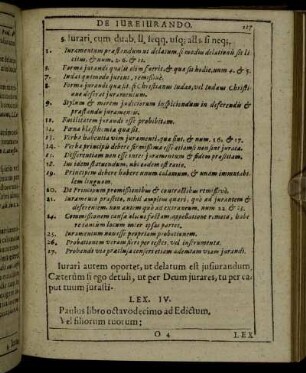 DE IUREIURANDO. 217
s. Iurari, cum duab. ll. seqq. usq; all. si neq;
1. Iuramentum præstandum ut delatum, si modus delationis sit licitus. & num. 2. 6. & 12.
2. Forma jurandi qualis olim fuerit, & qua sit hodie, num. 4. & 5.
7. Iudæi quomodo jurent, remissivè.
8. Forma jurandi qualis sit si Christianus Iudæo, vel Iudæus Christiano deferat juramentum.
9. Stylum & morem judiciorum inspiciendum in deferendis & præstandis juramentis.
10. Facilitatem jurandi esse prohibitam.
11. Pœna blasphemiæ qualis.
13. Verba habentia vim juramenti, quæ sint, & num. 16. & 17.
14. Verba principis debere firmissima esse etiamsi non sint jurata.
15. Differentiam non esse inter juramentum & fidem præstitam.
18. Ius idem statuendum, ubi eadem est ratio.
19. Principem debere habere unum calamum, & unam immutabilem linguam.
20. De Principum promissionibus & contractibus remissivè.
21. Iuramento præstito, nihil amplius quæri, quàm an juratum &
24. Commissionem causæ alicui factam, appellatione remota,
25. Iuramentum non esse propriam probationem.
26. Probationem veram fieri per testes, vel instrumenta.
27. Probandi vox prælusa censetur etiam ademtam viam jurandi.
Iurari autem oportet, ut delatum est jusjurandum,
Cæterùm si ego detuli, ut per Deum jurares, tu per ca-
put tuum jurasti.
LEX. IV.
Paulus libro octavodecimo ad Edictum,
Vel filiorum tuorum;
O 4 LEX